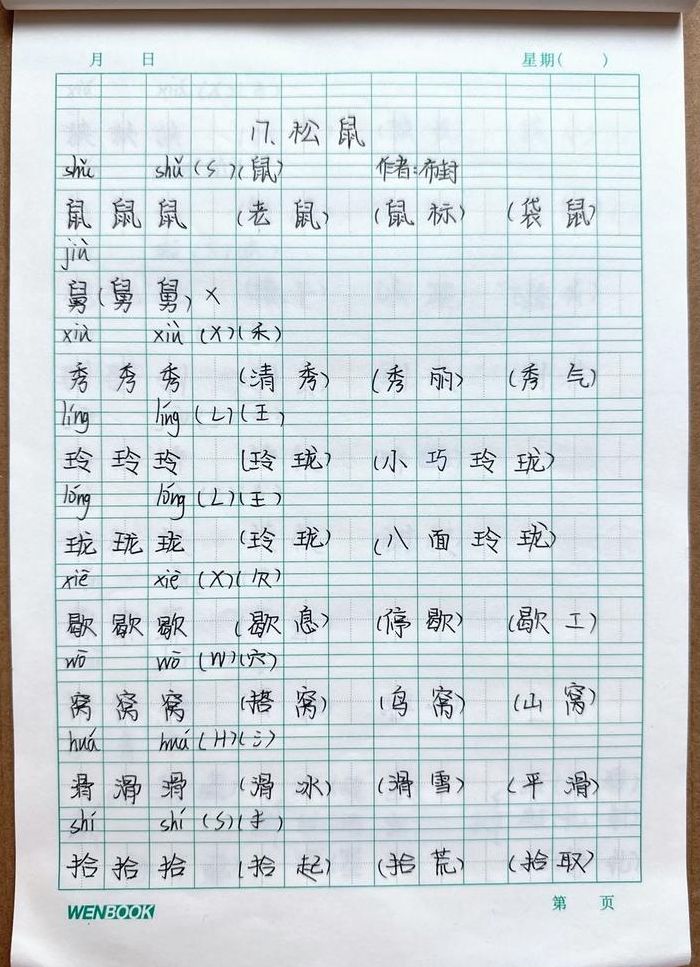 月 日 星期( )
17. 松鼠
shǔ shǔ (S)(鼠) 作者:布封
鼠 鼠 鼠 (老鼠) (鼠标) (袋鼠)
jiù
舅(舅 舅)×
xiù xiù (X)(禾)
秀 秀 秀 (清秀) (秀丽) (秀气)
líng líng (L)(王)
玲 玲 玲 (玲珑) (小巧玲珑)
lóng lóng (L)(王)
珑 珑 珑 (玲珑) (八面玲珑)
xiē xiē (X)(欠)
歇 歇 歇 (歇息) (停歇) (歇工)
wō wō (W)(穴)
窝 窝 窝 (搭窝) (鸟窝) (山窝)
huá huá (H)(氵)
滑 滑 滑 (滑冰) (滑雪) (平滑)
shí shí (S)(扌)
拾 拾 拾 (拾起) (拾荒) (拾取)
WENBOOK 第 页